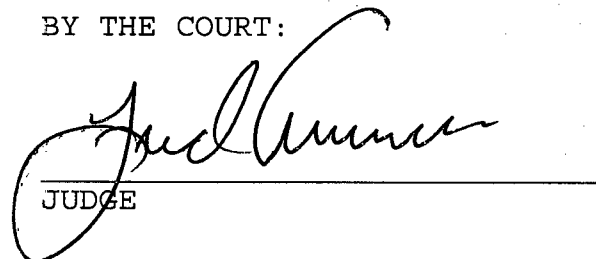 BY THE COURT:
JUDGE